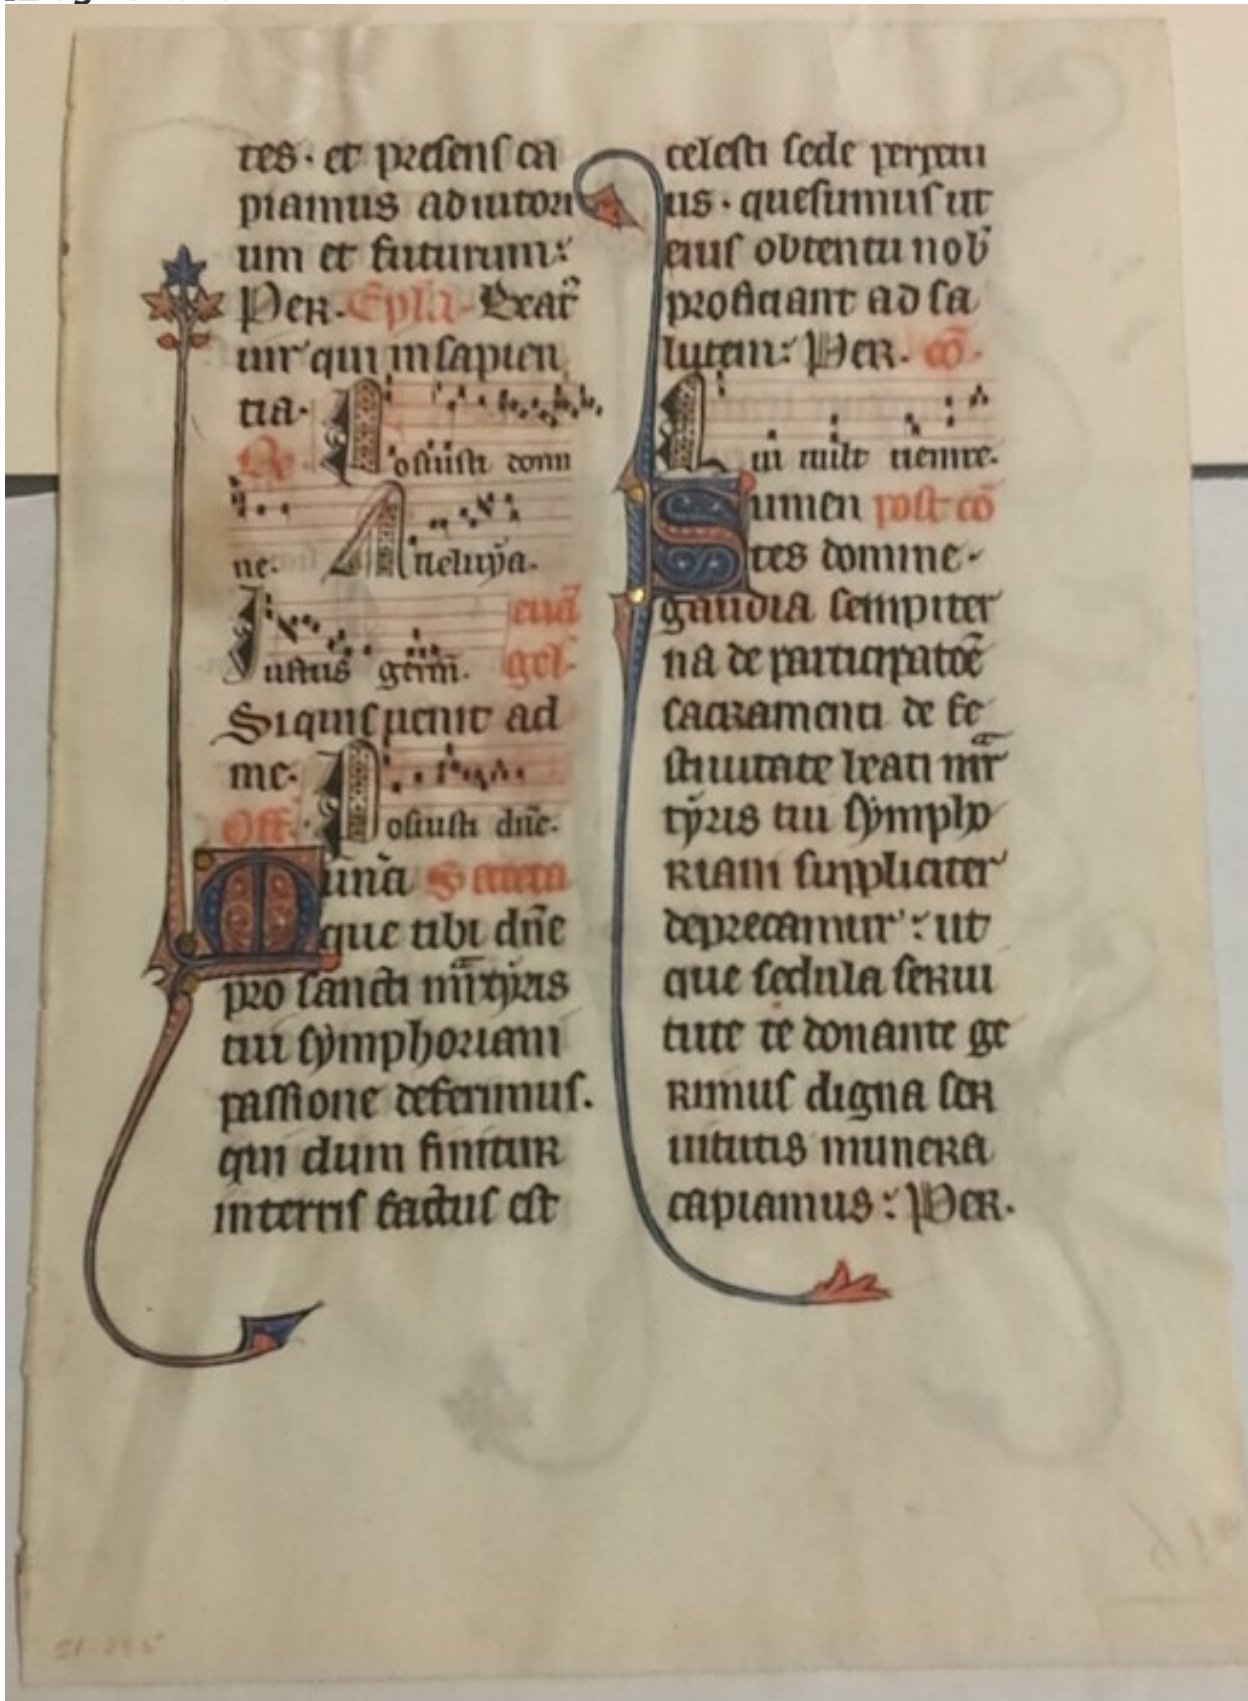 tes · et presens ca
piamus adiutori
um et futurum:
Per. Epl'a. Beat᷑
uir qui in sapien
tia.
R̃. Posuisti domi
ne. Alleluya.
Iustus germ̃. euã
gel.
Si quis uenit ad
me.
Off. Posuisti dñe.
Munã Secreta
que tibi dñe
pro sancti mr̃tyris
tui symphoriani
passione deferimus.
qui dum finitur
in terris factus est
celesti sede perpetu
us · quesumus ut
eius obtentu nob̃
proficiant ad sa
lutem: Per. cõ.
Qui uult uenire.
Sumen post cõ
tes domine
gaudia sempiter
na de participatõe
sacramenti de fe
stiuitate beati mr̃
tyris tui sympho
riani suppliciter
deprecamur: ut
que sedula serui
tute te donante ge
rimus digna ser
uitutis munera
capiamus: Per.